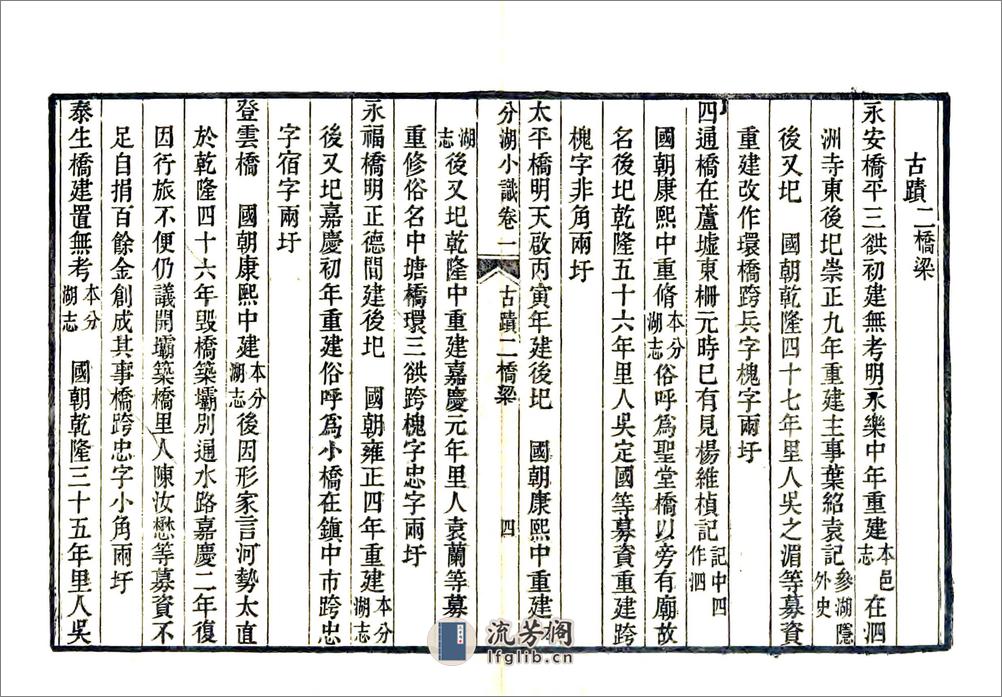 古蹟二橋梁
永安橋平三㳟初建無考明永樂中年重建本邑志在泗
洲寺東後圮崇正九年重建主事葉紹袁記參湖隱外史
後又圮　國朝乾隆四十七年里人吳之湄等募資
重建改作環橋跨兵字槐字兩圩
四通橋在蘆墟東柵元時已有見楊維楨記記中四作泗
國朝康熙中重脩本分湖志俗呼爲聖堂橋以旁有廟故
名後圮乾隆五十六年里人吳定國等募資重建跨
槐字非角兩圩
太平橋明天啟丙寅年建後圮　國朝康熙中重建
分湖小識卷一　古蹟二橋梁　四
本分湖志後又圮乾隆中重建嘉慶元年里人袁蘭等募
重修俗名中塘橋環三㳟跨槐字忠字兩圩
永福橋明正德間建後圮　國朝雍正四年重建本分湖志
後又圮嘉慶初年重建俗呼爲小橋在鎮中市跨忠
字宿字兩圩
登雲橋　國朝康熙中建本分湖志後因形家言河勢太直
於乾隆四十六年毀橋築壩別通水路嘉慶二年復
因行旅不便仍議開壩築橋里人陳汝懋等募資不
足自捐百餘金創成其事橋跨忠字小角兩圩
泰生橋建置無考本分湖志　國朝乾隆三十五年里人吳
流芳閣
lfglib.cn